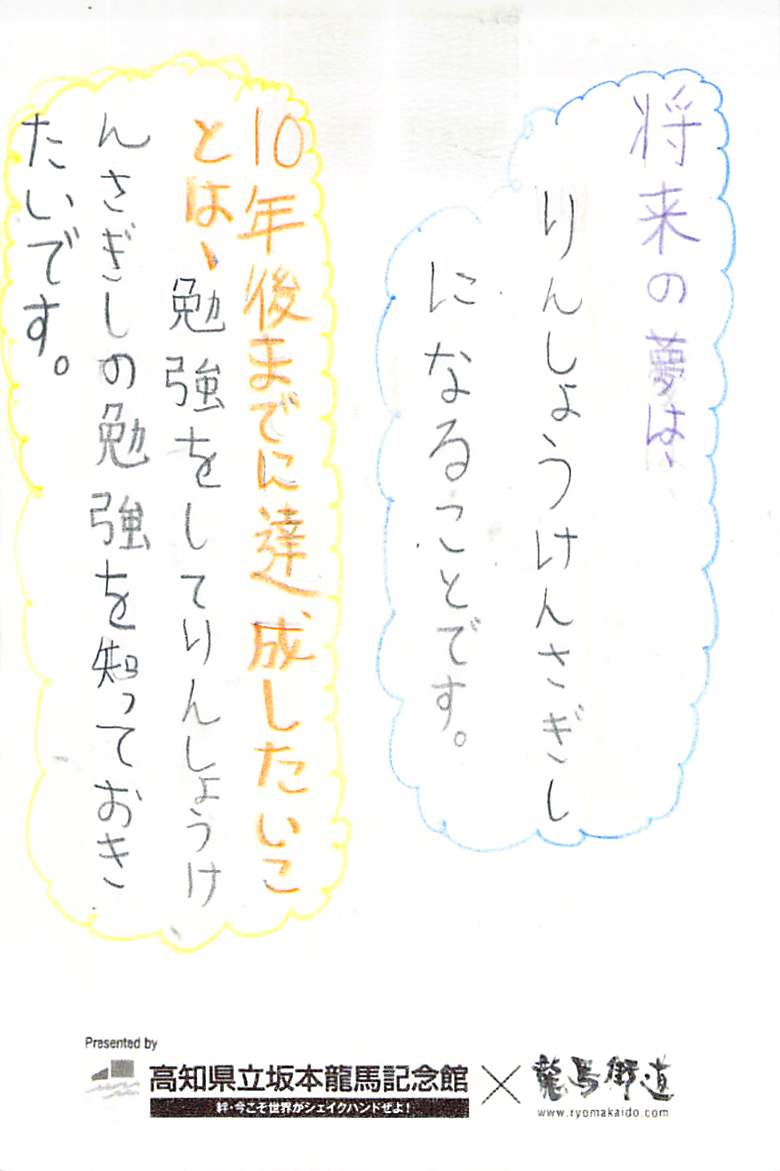 将来の夢は、
りんしょうけんさぎし
になることです。
10年後までに達成したいこ
とは、勉強をしてりんしょうけ
んさぎしの勉強を知っておき
たいです。
Presented by
高知県立坂本龍馬記念館
絆・今こそ世界がシェイクハンドぜよ!
×
龍馬街道
www.ryomakaido.com